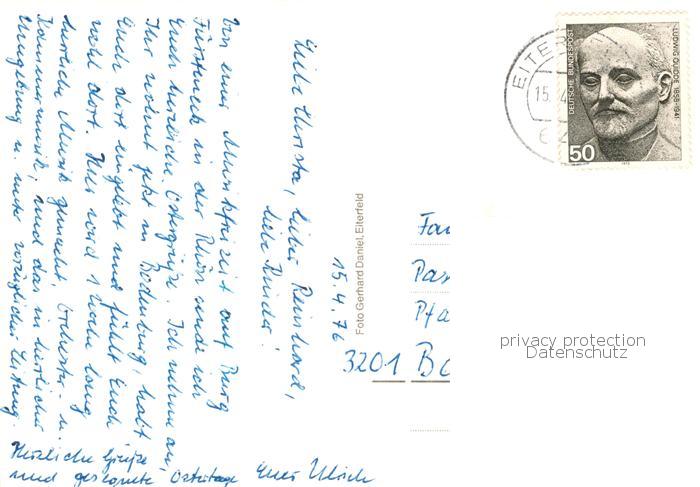 15.4.76
Liebe Christa, lieber Reinhard,
liebe Kinder!
Von einer Musikfreizeit auf Burg
Fürsteneck in der Rhön sende ich
Euch herzliche Ostergrüße. Ich nehme an,
Ihr wohnt jetzt in Bodenburg, habt
Euch dort eingelebt und fühlt Euch
wohl dort. Hier wird 1 Woche lang
herrliche Musik gemacht, Orchester- u.
Kammermusik, und das in herrlicher
Umgebung u. unter vorzüglicher Leitung.
Herzliche Grüße
und gesegnete Ostertage Euer Ulrich
Foto Gerhard Daniel, Eiterfeld
EITER
15. 4
6
DEUTSCHE BUNDESPOST
LUDWIG QUIDDE 1858-1941
50
1975
Fa
Pas
Pfa
3201 Bo
privacy protection
Datenschutz